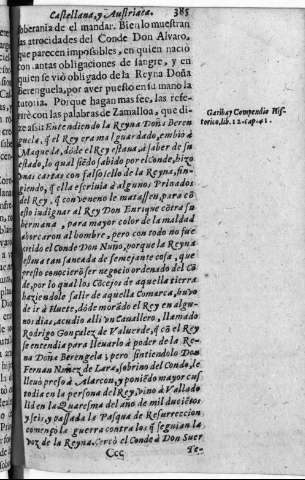 Castellana, y Austriaca. 385
soberania de el mandar. Bien lo muestran
las atrocidades del Conde Don Alvaro,
que parecen impossibles, en quien nació
con tantas obligaciones de sangre, y en
quien se vió obligado de la Reyna Doña
Berenguela, por aver puesto en su mano la
tutoria. Porque hagan mas fee, las refe-
rirè con las palabras de Zamalloa, que di-
ze assi: Entendiendo la Reyna Doña Beren
guela, q̃ el Rey era mal guardado, embió à
Maqueda, dōde el Rey estava, à saber de su
estado, lo qual siēdo sabido por el Conde, hizo
unas cartas con falso sello de la Reyna, fin-
giendo, q̃ ella escrivia à algunos Privados
del Rey, q̃ con veneno le matassen, para cō
esto indignar al Rey Don Enrique cōtra su
hermana, para mayor color de la maldad
ahorcaron al hombre, pero con todo no fue
creido el Conde Don Nuño, porque la Reyna
estava tan saneada de semejante cosa, que
presto conocierō ser negocio ordenado del Cō
de, por lo qual los Cōcejos de aquella tierra
haziendole salir de aquella Comarca, huvo
de ir à Huete, dōde morādo el Rey en algu-
nos dias, acudio alli un Cavallero, llamado
Rodrigo Gonçalez de Valverde, q̃ cō el Rey
se entendia para llevarlo à poder de la Re-
yna Doña Berengela; pero sintiendolo Don
Fernan Nuñez de Lara, sobrino del Conde, le
llevò preso à Alarcon, y poniēdo mayor cus
todia en la persona del Rey, vino à Vallado
lid en la Quaresma del año de mil ducietos
y seis, y passada la Pasqua de Resurreccion
començò la guerra contra los q̃ seguian la
voz de la Reyna. Cercò el Conde à Don Suer
Ccc Te-
Garibay Compendio His-
torico, lib. 12. cap. 41.